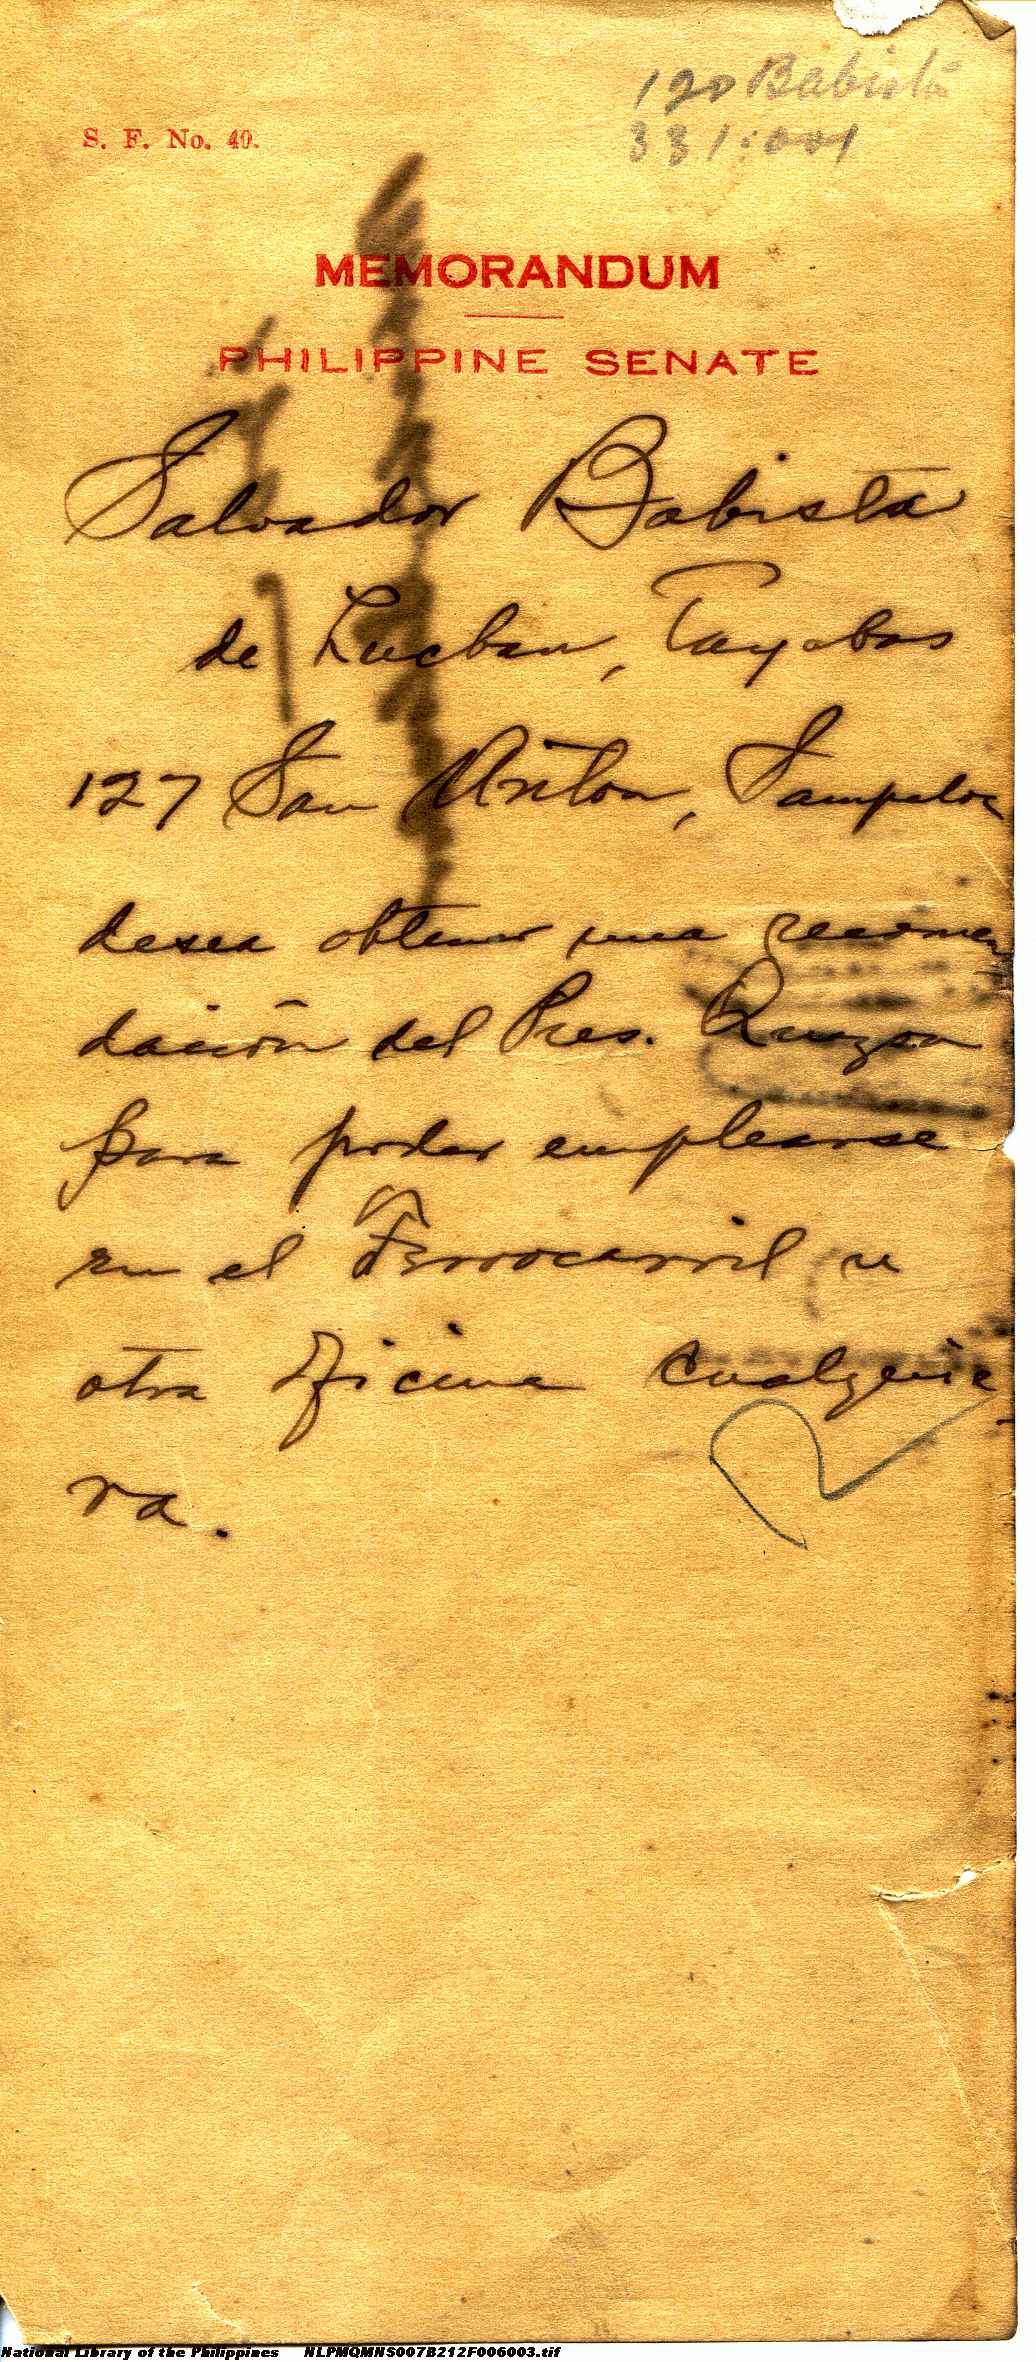 120 Babista
331:001
S. F. No. 40.
MEMORANDUM
PHILIPPINE SENATE
Salvador Babista
de Lucban, Tayabas
127 San Anton, Sampaloc
desea obtener una recomen
dación del Pres. Quezon
para poder emplearse
en el Ferrocarril u
otra oficina cualquie
ra.
National Library of the Philippines NLPMQMNS007B212F006003.tif